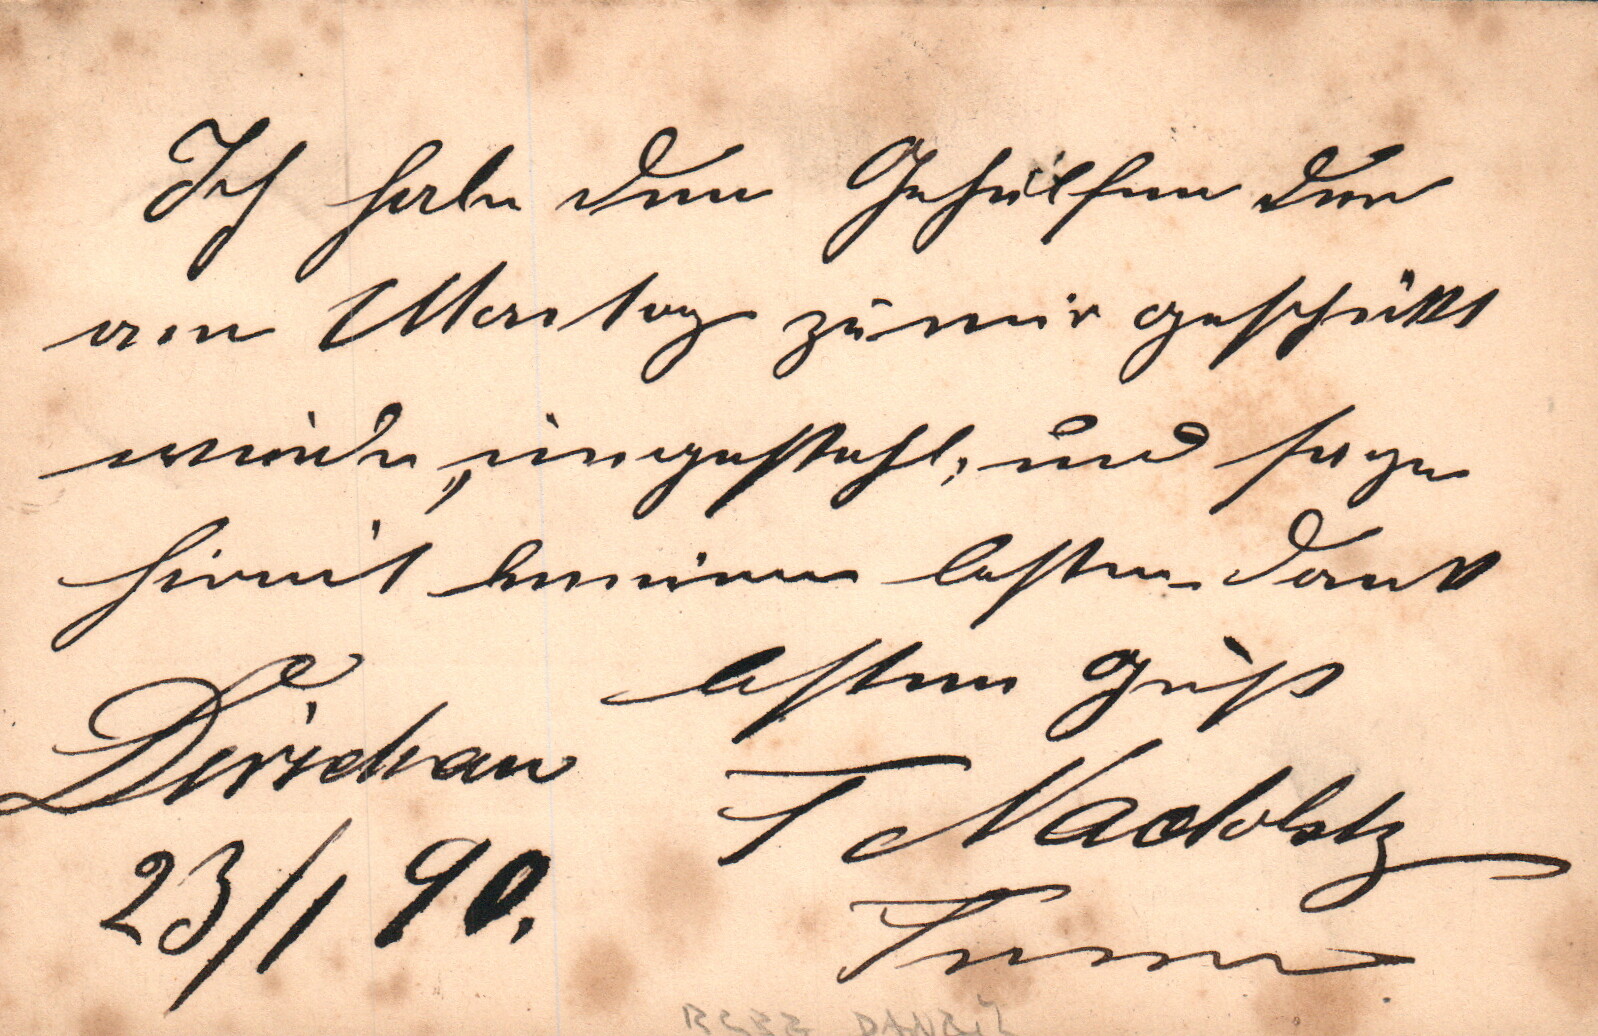 Ich habe den Gehülfen der
am Montag zu mir geschickt
wurde, eingestelt, und sage
hiermit meinen besten Dank
besten Gruß
Dirschau
T Nadolski
23/1 90.
DANZIG